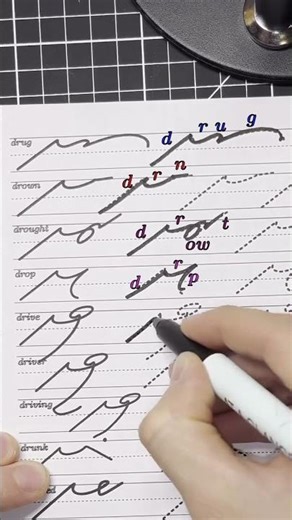 drug d r u g
drown d r n
drought d r t
ow
drop d r p
drive
driver
driving
drunk